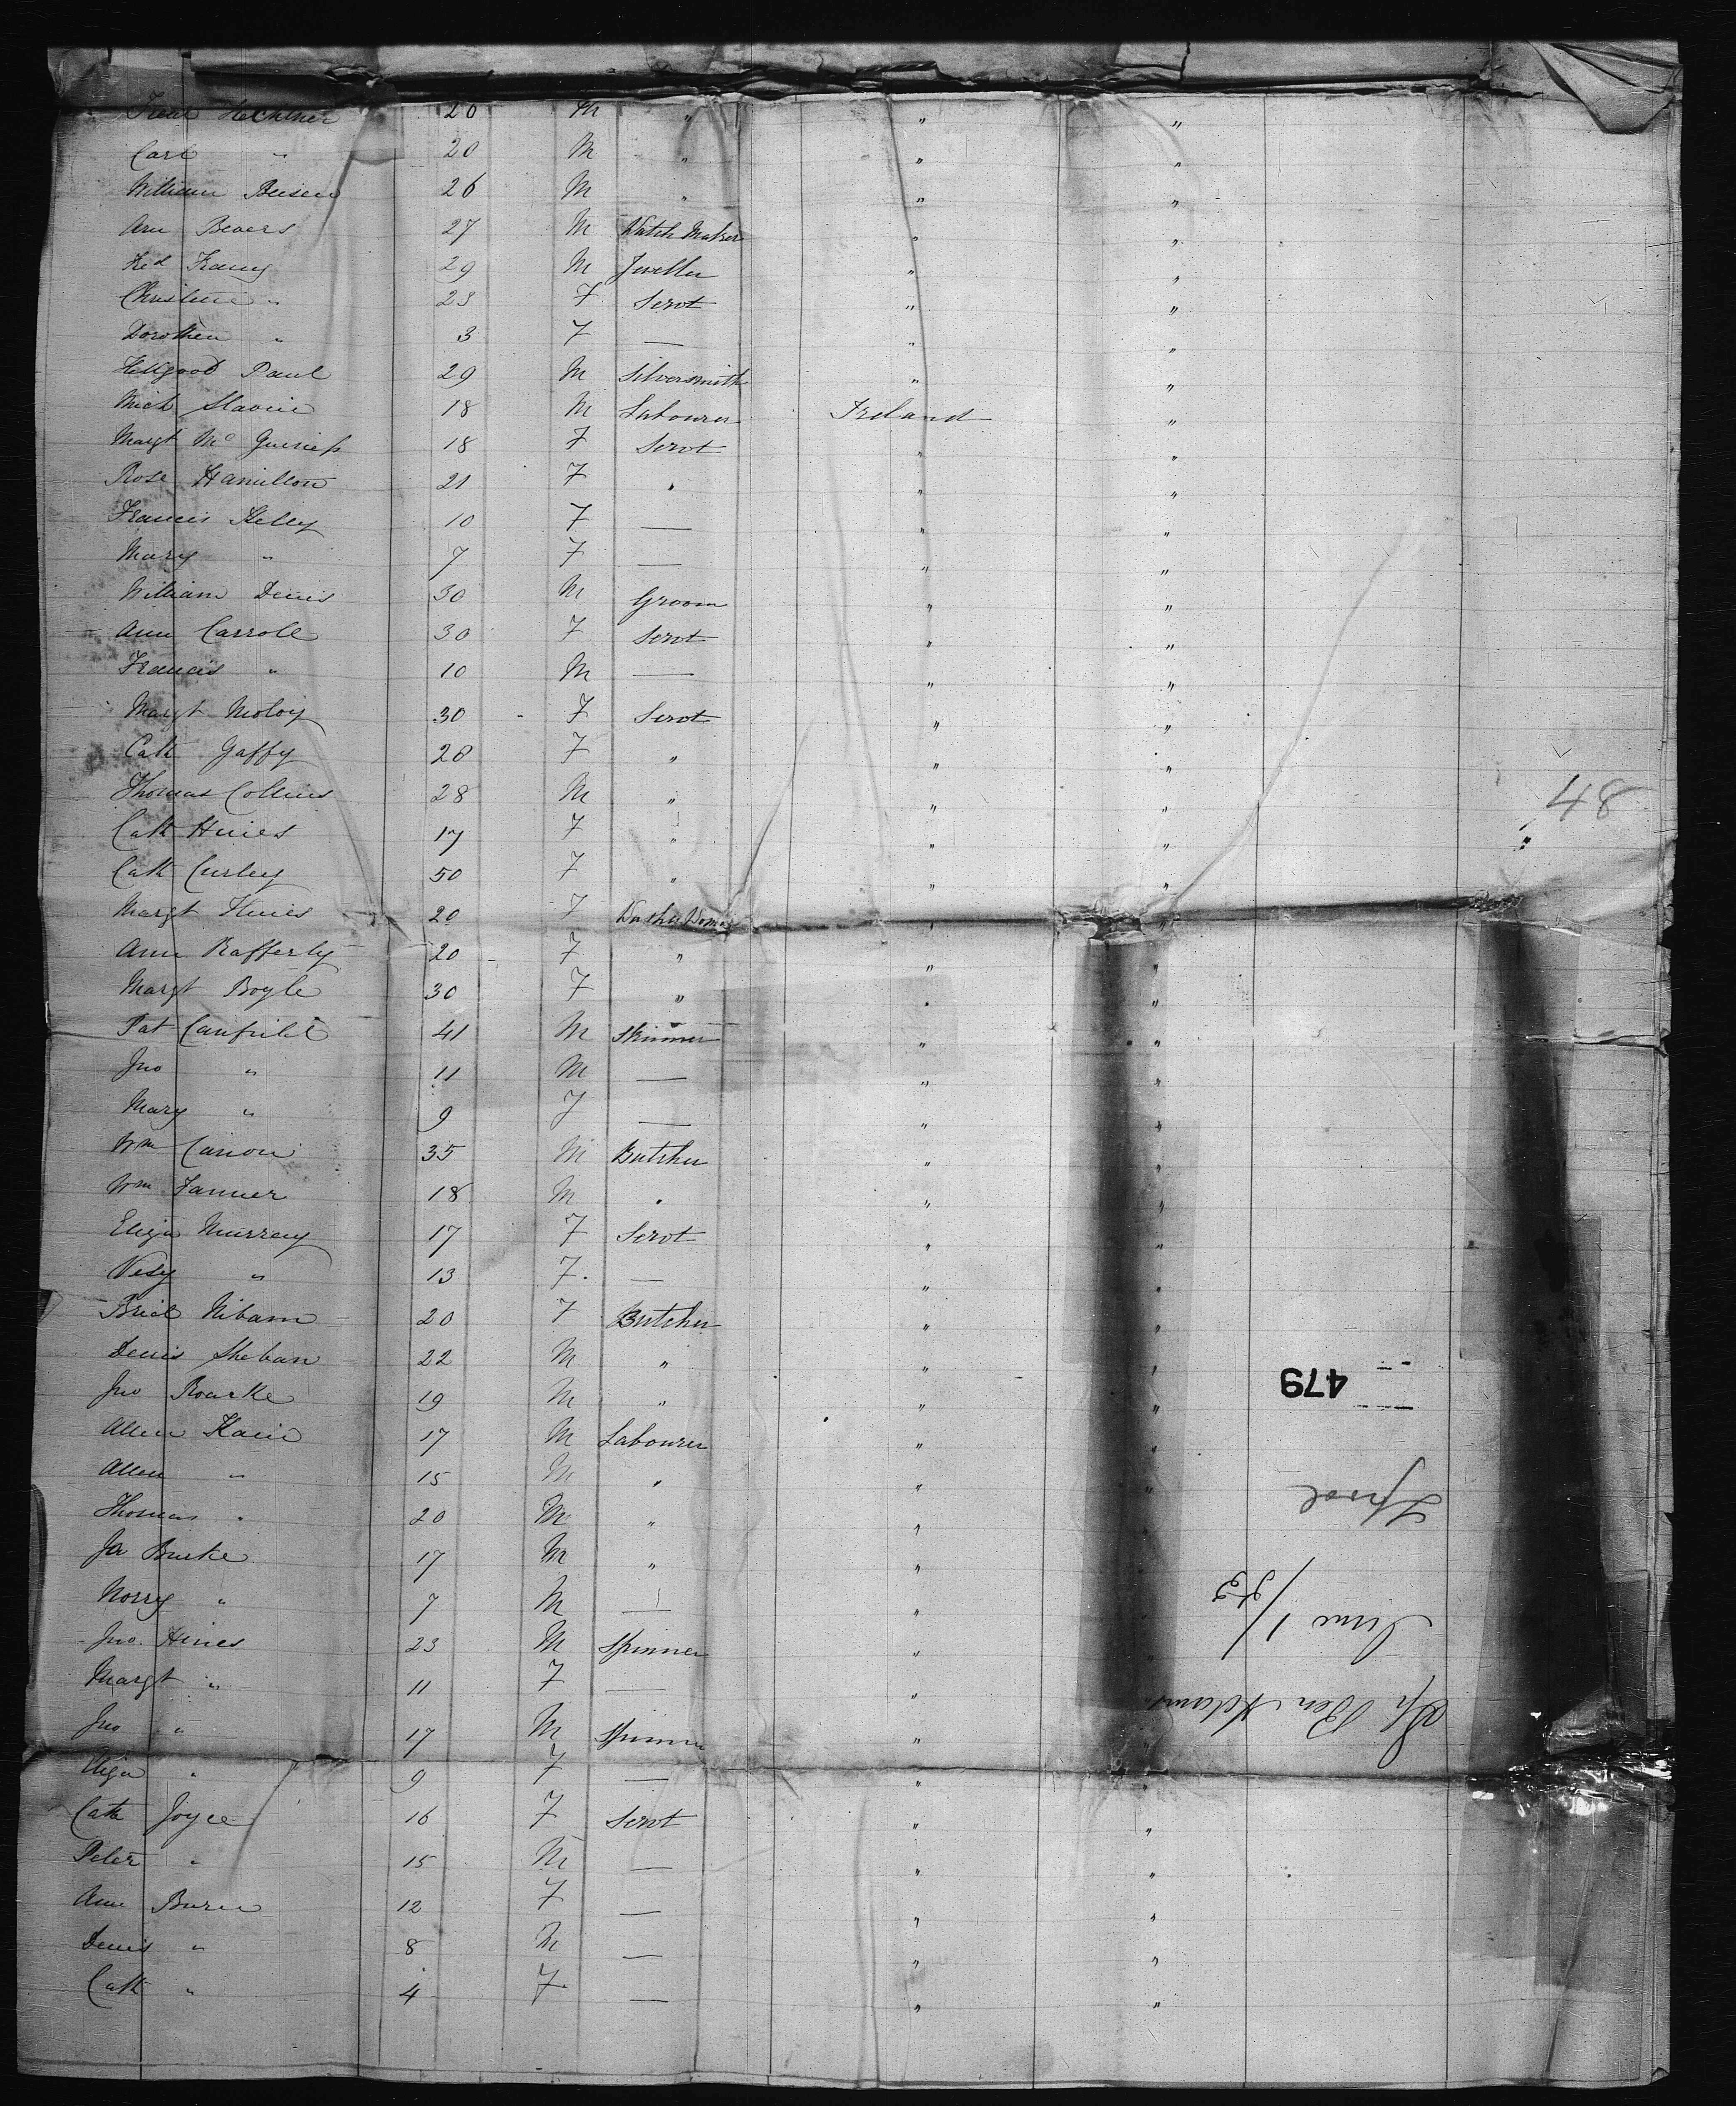 Hechlner 20 M " " "
Carl " 20 M " " "
William 26 M " " "
Ann Beaers 27 M Watch Maker " "
Fred Franz 29 M Jeweller " "
Christine " 23 F Servt " "
Dorothea " 3 F — " "
Hellgood Paul 29 M Silversmith " "
Mich Slavin 18 M Labourer Ireland "
Margt Mc Guiness 18 F Servt " "
Rose Hamilton 21 F " " "
Francis Kelly 10 F — " "
Mary " 7 F — " "
William Denis 30 M Groom " "
Ann Carroll 30 F Servt " "
Francis " 10 M — " "
Margt Moloy 30 F Servt " "
Cath Gaffy 20 F " " "
Thomas Collins 28 M " " "
48
Cath Hines 17 F " " "
Cath Curley 50 F " " "
Margt Hines 20 F Washer Woman " "
Ann Rafferty 20 F " " "
Margt Boyle 30 F " " "
Pat 41 M Skinner " "
Jno " 11 M — " "
Mary " 9 F — " "
Wm Canon 35 M Butcher " "
Wm Fanner 18 M " " "
Eliza Murray 17 F Servt " "
" 13 F — " "
20 F Butcher " "
Denis Sheban 22 M " " "
Jno Roarke 19 M " " "
479
Allen 17 M Labourer " "
Allen " 15 M " " "
Lpool
Thomas " 20 M " " "
Burke 17 M " " "
Norry " 7 M — " "
June 1/53
Jno Hines 23 M Spinner " "
Margt " 11 F — " "
Sp Ben Adams
Jno " 17 M Spinner " "
Eliza " 9 F — " "
Cath Joyce 16 F Servt " "
Peter " 15 M — " "
Ann Burn 12 F — " "
Denis " 8 M — " "
Cath " 4 F — " "